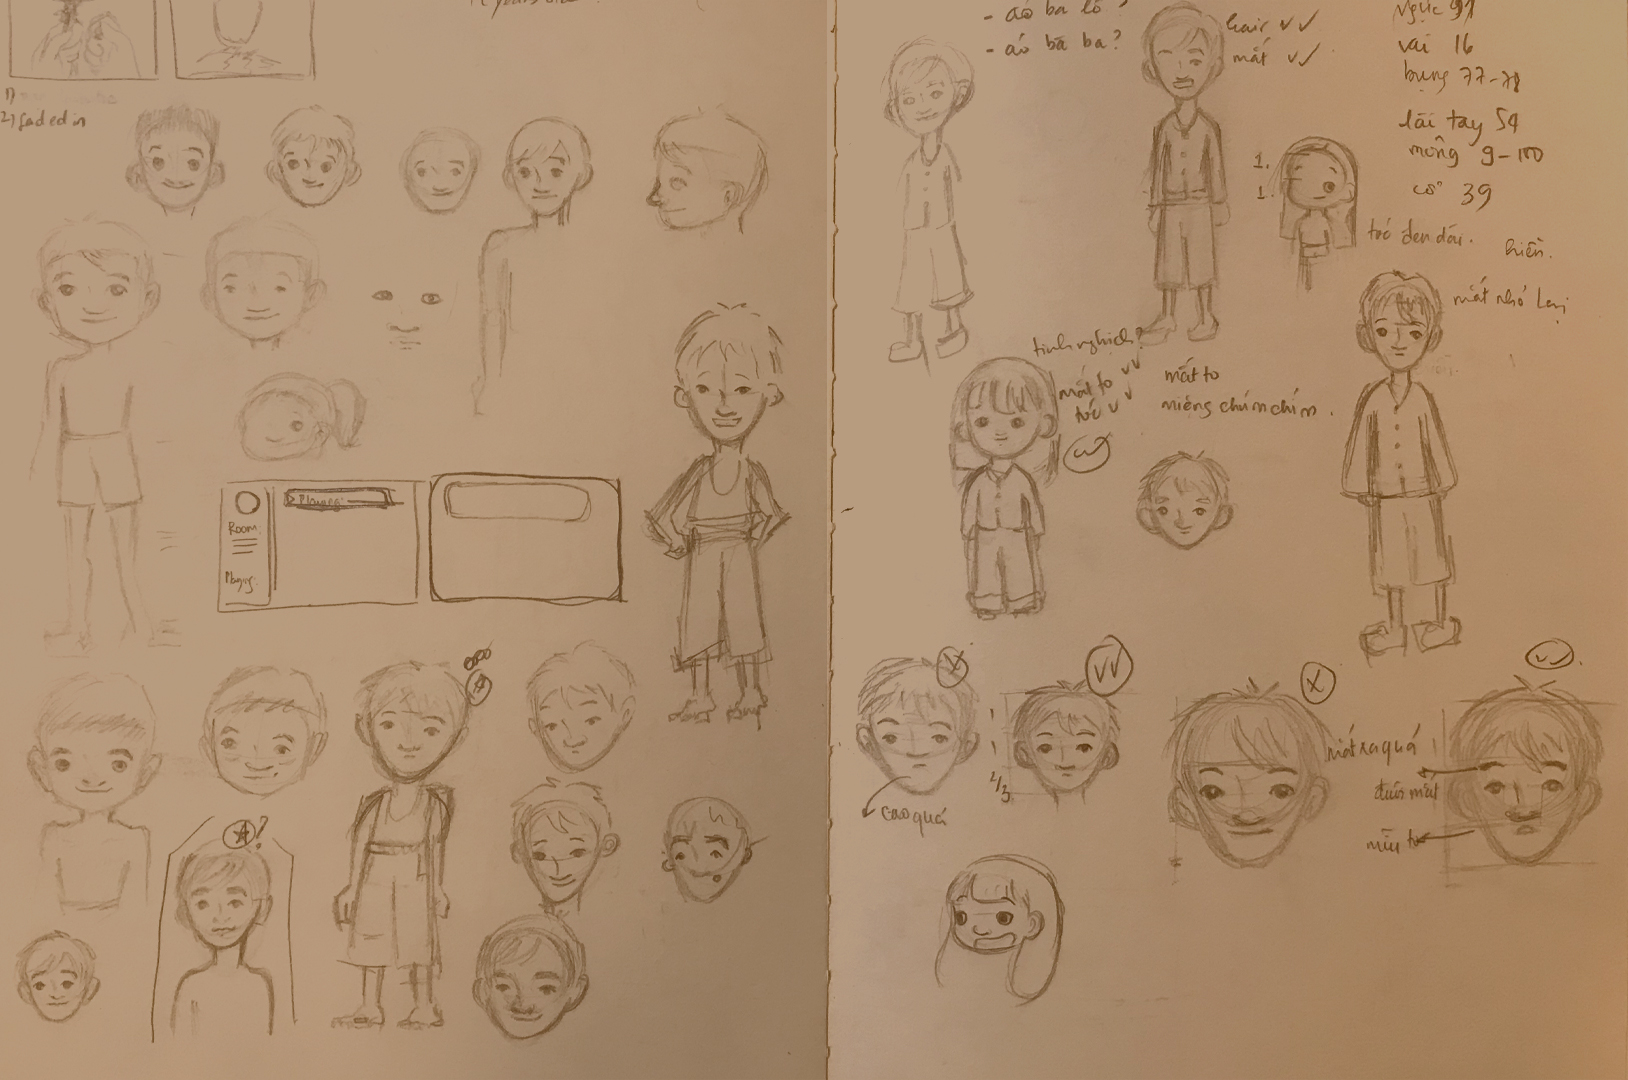 1)
2) faded in
Room
Playing:
- áo ba lỗ?
- áo bà ba?
hair ✓✓
mắt ✓✓
ngực 91
vai 16
bụng 77-78
tay 54
mông 9-100
cổ 39
1.
1.
tóc đen dài.
hiền.
mắt nhỏ lại
tinh nghịch?
mắt to ✓✓
tóc ✓✓
mắt to
miệng chúm chím.
2/3
cao quá
mắt xa quá
đuôi mắt
mũi to